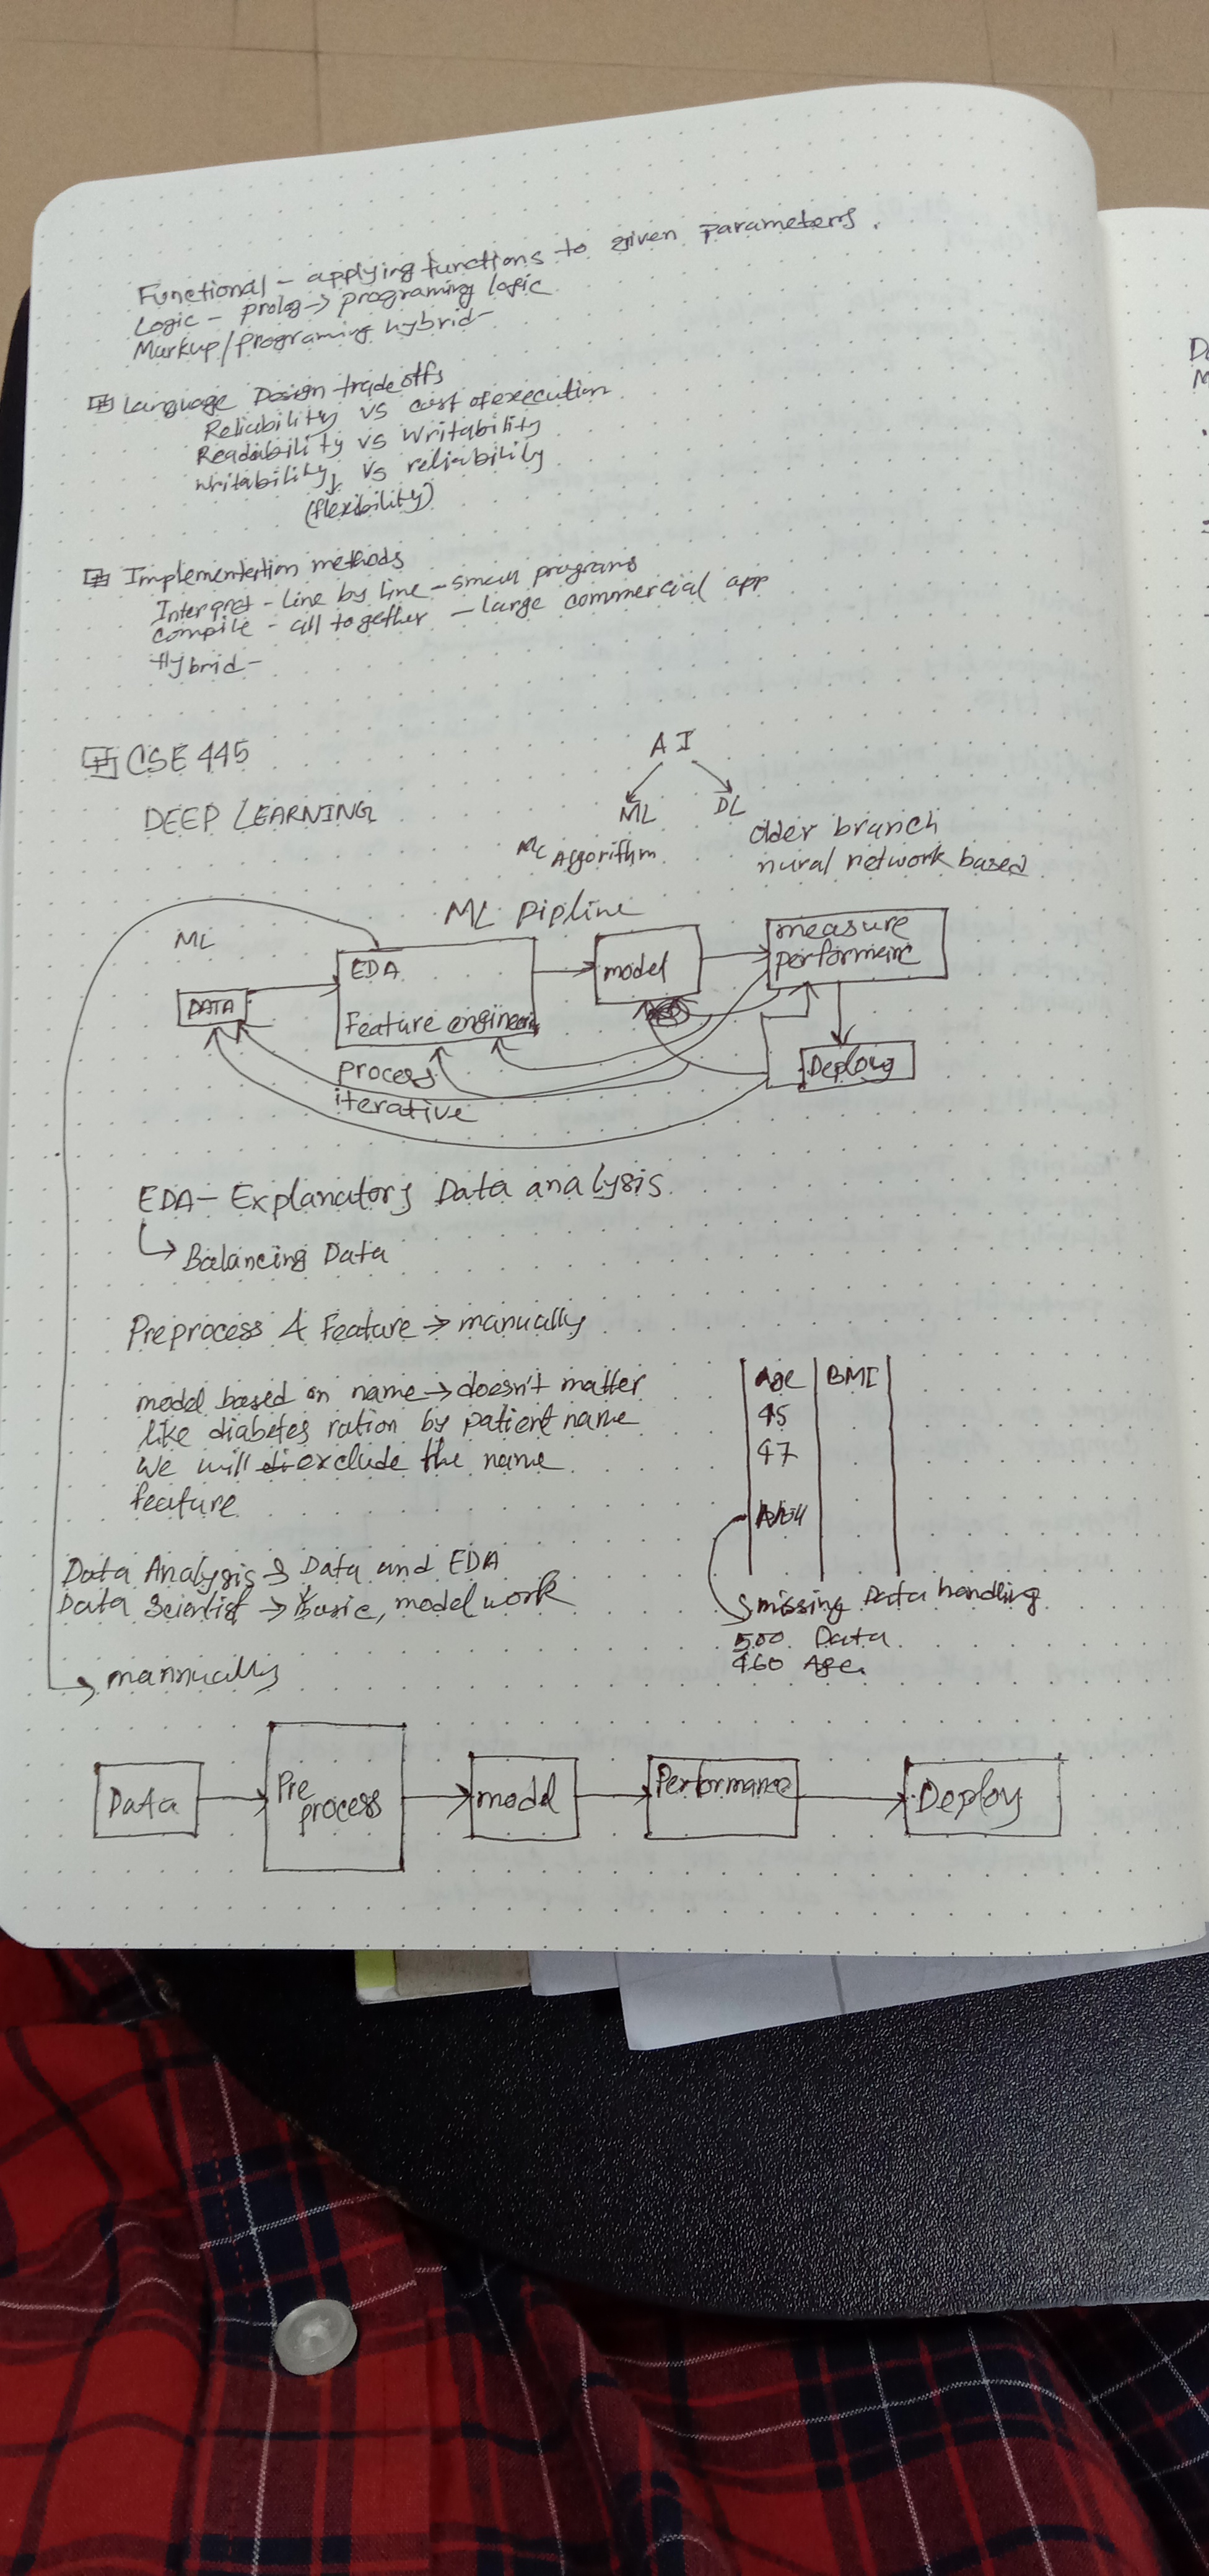 Functional - applying functions to given parameters.
Logic - prolog → programing logic
Markup/programing hybrid -
Language Design trade offs
Reliability vs cost of execution
Readability vs writability
writability vs reliability
(flexibility)
Implementation methods
Interpret - line by line - small programs
compile - all together - large commercial app
Hybrid -
CSE 445
AI
DEEP LEARNING
ML DL
ML Algorithm
older branch
nural network based
ML Pipline
ML
DATA
EDA
Feature engineer
model
measure
performanc
Deploy
process
iterative
EDA - Explanatory Data analysis
Balancing Data
Preprocess & Feature → manually
model based on name → doesn't matter
like diabetes ration by patient name
we will exclude the name
feature
Age BMI
45
47
missing Data handling
500 Data
460 Age
Data Analysis → Data and EDA
Data Scientist → Basic, model work
mannually
Data
Pre
process
model
Performance
Deploy